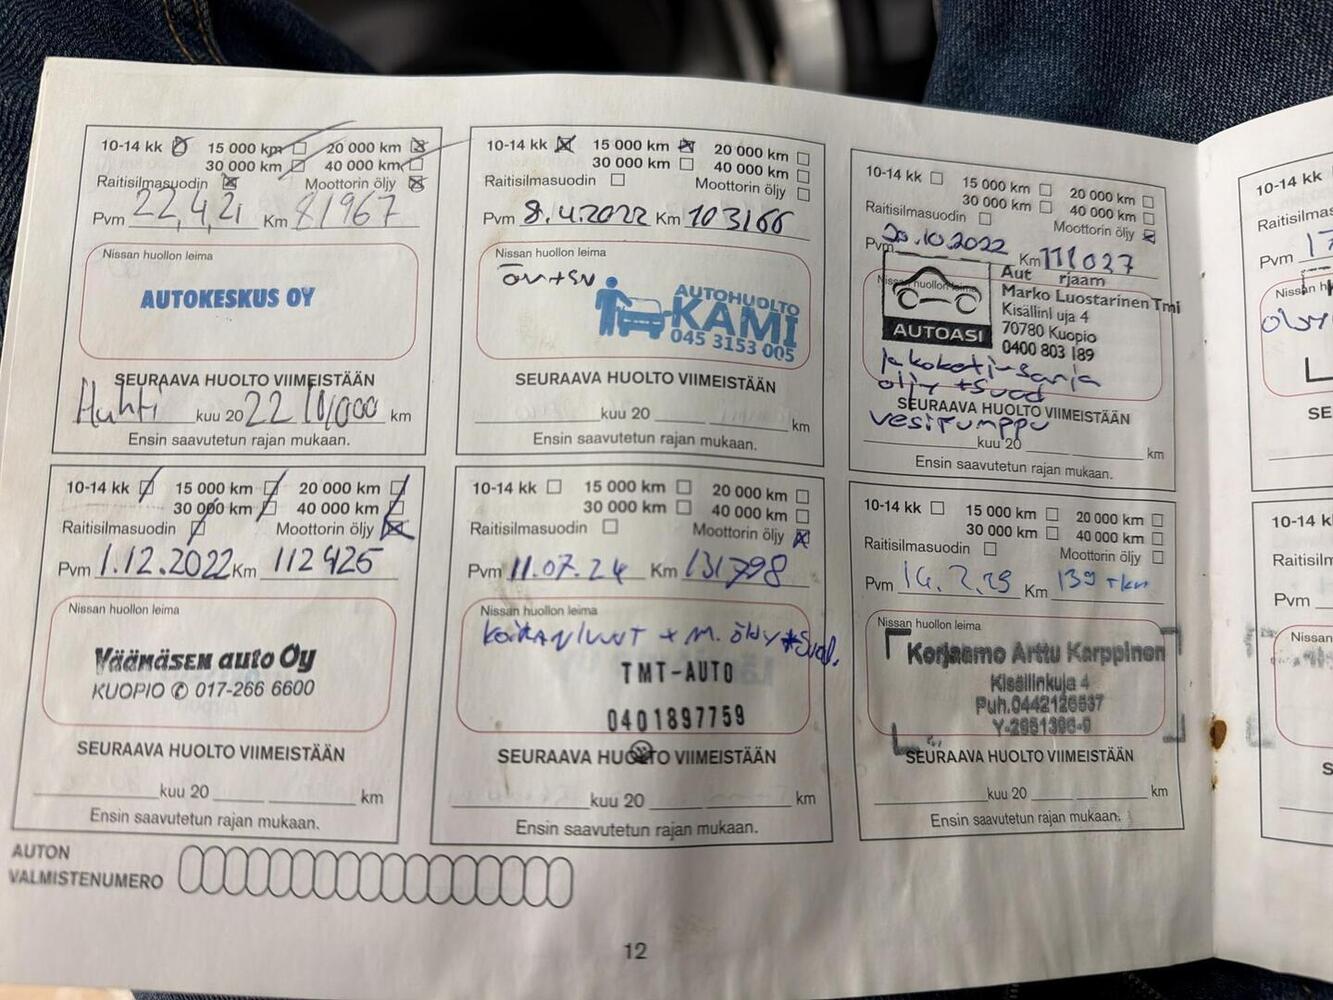 10-14 kk 15 000 km 20 000 km
30 000 km 40 000 km
Raitisilmasuodin Moottorin öljy
Pvm 22,4,21 Km 81967
Nissan huollon leima
AUTOKESKUS OY
SEURAAVA HUOLTO VIIMEISTÄÄN
Huhti kuu 2022 101,000 km
Ensin saavutetun rajan mukaan.
10-14 kk 15 000 km 20 000 km
30 000 km 40 000 km
Raitisilmasuodin Moottorin öljy
Pvm 8.4.2022 Km 103166
Nissan huollon leima
öv+sv
AUTOHUOLTO
KAMI
045 3153 005
SEURAAVA HUOLTO VIIMEISTÄÄN
kuu 20 km
Ensin saavutetun rajan mukaan.
10-14 kk 15 000 km 20 000 km
30 000 km 40 000 km
Raitisilmasuodin Moottorin öljy
Pvm 20.10.2022 Km 111027
Nissan huollon leima
Aut rjaam
Marko Luostarinen Tmi
Kisällinl uja 4
70780 Kuopio
0400 803 189
AUTOASI
jakokoti-sarja
öljy +suod
SEURAAVA HUOLTO VIIMEISTÄÄN
vesipumppu
kuu 20 km
Ensin saavutetun rajan mukaan.
10-14 kk 15 000 km 20 000 km
30 000 km 40 000 km
Raitisilmasuodin Moottorin öljy
Pvm 1.12.2022 Km 112425
Nissan huollon leima
Väänäsen auto Oy
KUOPIO ✆ 017-266 6600
SEURAAVA HUOLTO VIIMEISTÄÄN
kuu 20 km
Ensin saavutetun rajan mukaan.
10-14 kk 15 000 km 20 000 km
30 000 km 40 000 km
Raitisilmasuodin Moottorin öljy
Pvm 11.07.24 Km 131798
Nissan huollon leima
+ M. öljy +Suod.
TMT-AUTO
0401897759
SEURAAVA HUOLTO VIIMEISTÄÄN
kuu 20 km
Ensin saavutetun rajan mukaan.
10-14 kk 15 000 km 20 000 km
30 000 km 40 000 km
Raitisilmasuodin Moottorin öljy
Pvm Km 139 tkm
Nissan huollon leima
Korjaamo Arttu Karppinen
Kisällinkuja 4
Puh.0442126537
Y-2951396-9
SEURAAVA HUOLTO VIIMEISTÄÄN
kuu 20 km
Ensin saavutetun rajan mukaan.
AUTON
VALMISTENUMERO
12
10-14 kk
Raitisilmas
Pvm 17
Nissan h
öljy
SE
10-14 k
Raitisilm
Pvm
Nissan
S